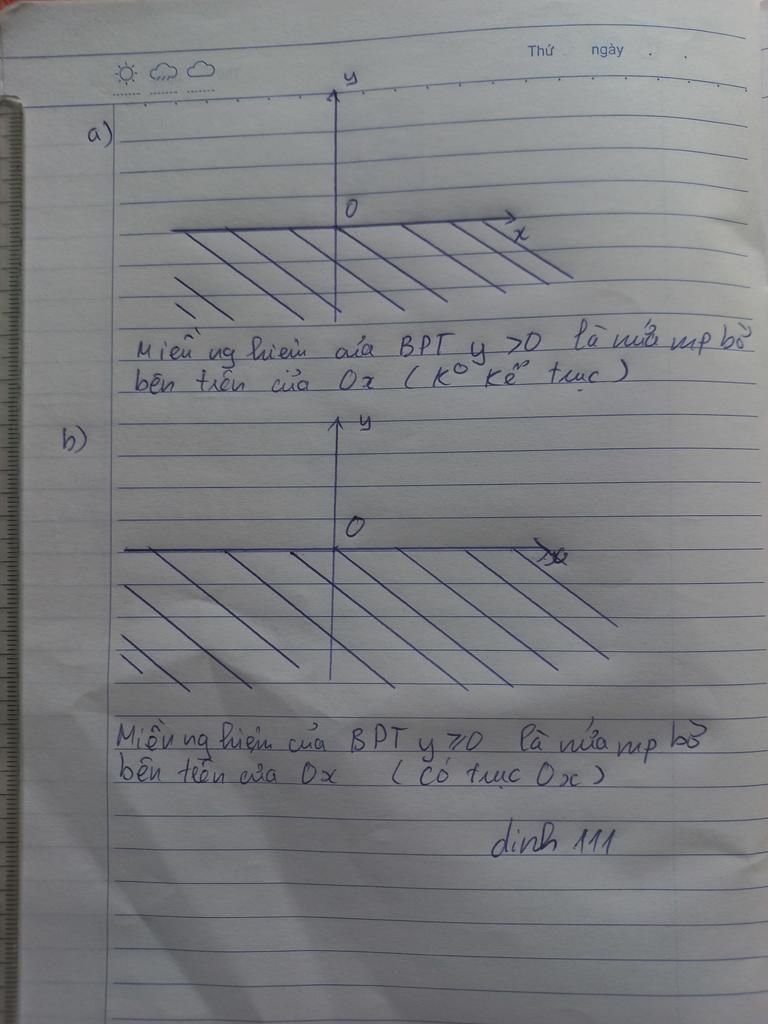 Thứ ngày . .
a)
y
O
x
Miền nghiệm của BPT y > 0 là nửa mp bờ
bên trên của Ox (Ko kể trục)
b)
y
O
x
Miền nghiệm của BPT y ≥ 0 là nửa mp bờ
bên trên của Ox (có trục Ox)
dinh 111